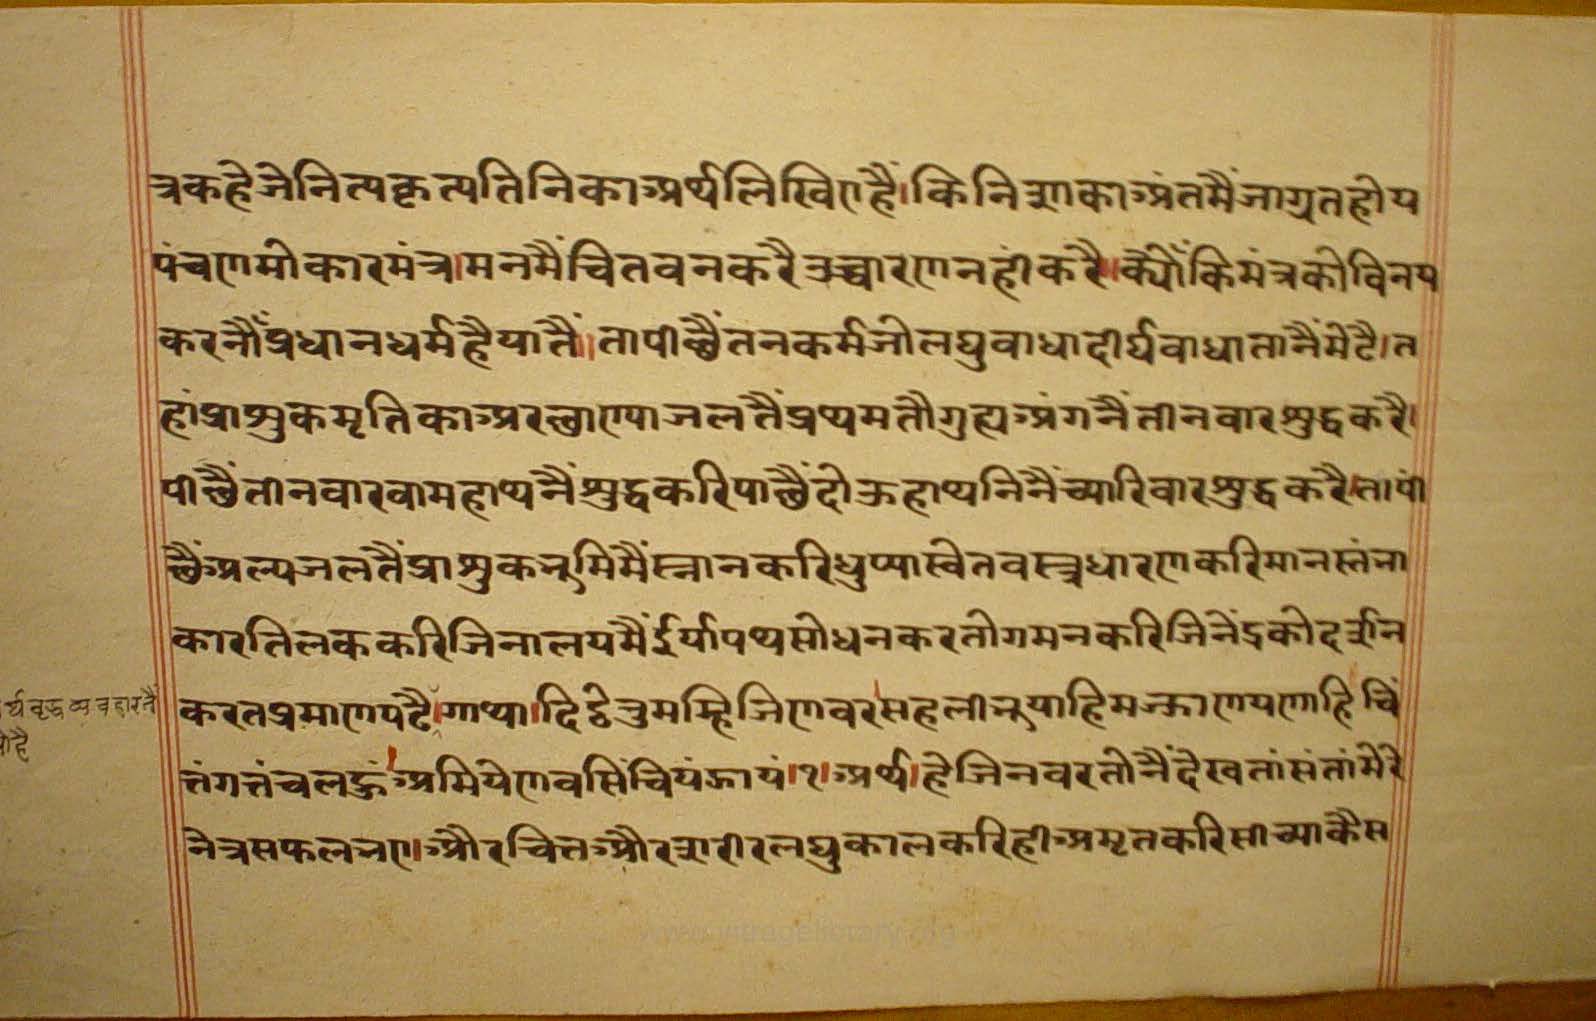 त्रकहेजेनित्यकृत्यतिनिकाअर्थलिखिएहैं।किनिशाकाअंतमैंजाग्रतहोय
पंचणमोकारमंत्र।मनमैंचितवनकरैउच्चारणनहींकरै।क्योंकिमंत्रकोविनय
करनौंप्रधानधर्महैयातैं।तापीछैंतनकर्मजोलघुवाधादीर्घवाधातानैंमेटै।त
हांप्राशुकमृतिकाअरछाण्याजलतैंप्रथमतौगुह्यअंगनैंतीनवारशुद्धकरै।
पीछैंतीनवारवामहाथनैंशुद्धकरिपाछैंदोऊहाथनिनैंच्यारिवारशुद्धकरै।तापी
छैंअल्पजलतैंप्राशुकभूमिमैंस्नानकरिधुप्यास्वेतवस्त्रधारणकरिमानस्तंभा
कारतिलककरिजिनालयमैंईर्यापथसोधनकरतोगमनकरिजिनेंद्रकोदर्शन
करतप्रमाणपढै।गाथा।दिट्ठेतुमम्हिजिणवरसहलीभूयाहिमज्झणयणाहिचि
त्तंगत्तंचलहुंअमियेणवसिंचियंजायं।१।अर्थ।हेजिनवरतोनैंदेखतांसंतांमेरे
नेत्रसफलभए।औरचित्तऔरशरीरलघुकालकरिहीअमृतकरिसीच्याकैस
र्थवृद्धव्यवहारतैं